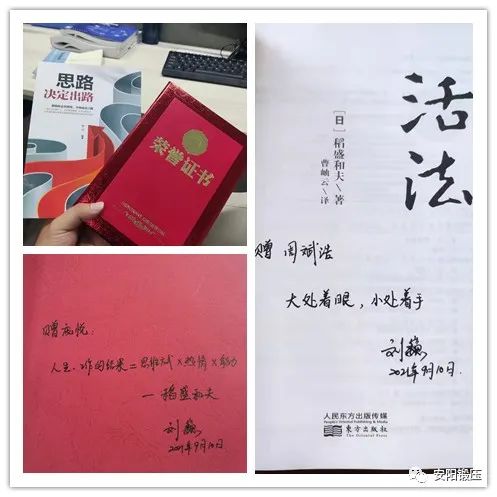 思路
决定出路
荣誉证书
活法
[日]稻盛和夫\著
曹岫云\译
赠 周斌浩
大处着眼，小处着手
刘巍
2021年9月10日.
人民东方出版传媒
People's Oriental Publishing & Media
东方出版社
The Oriental Press
人生·工作的结果=思维方式×热情×能力
—稻盛和夫
2021年9月10日
安阳锻压